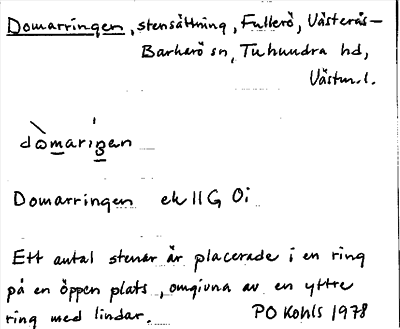 Domarringen, stensättning, Fullerö, Västerås-
Barkarö sn, Tuhundra hd,
Västm. l.
domarigen
Domarringen ek 11G 0i
Ett antal stenar är placerade i en ring
på en öppen plats, omgivna av en yttre
ring med lindar. PO Kohls 1978